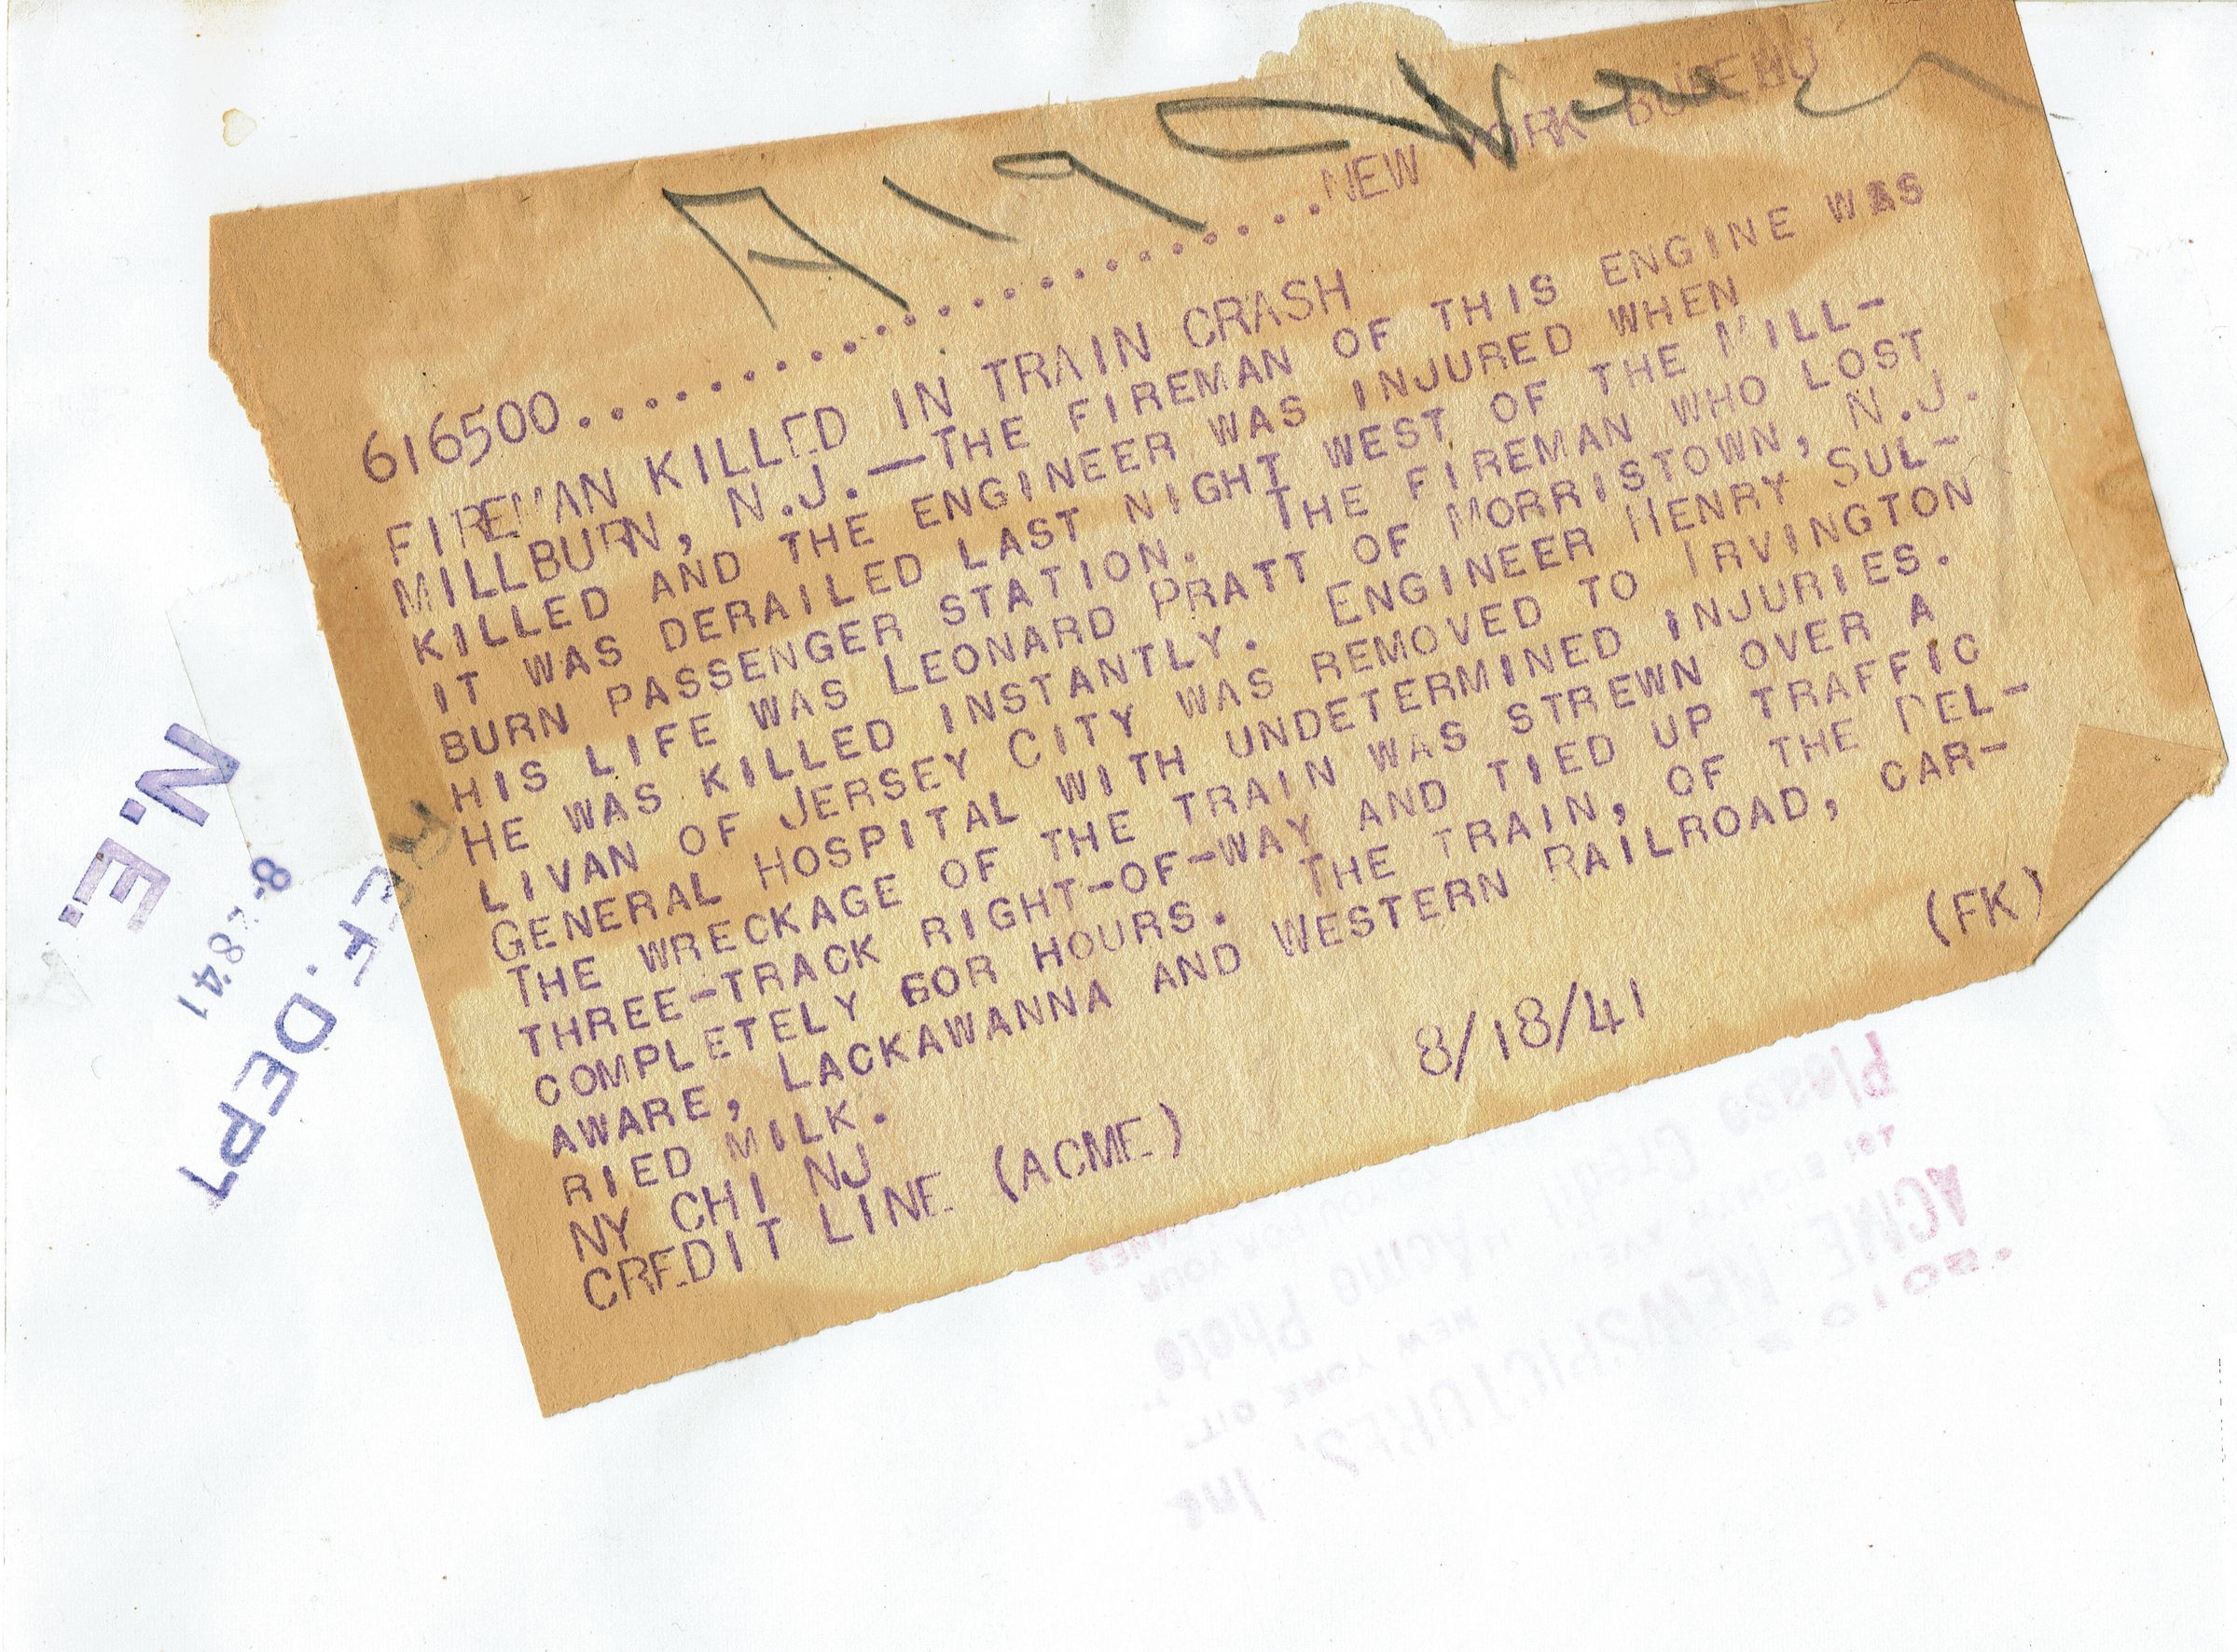 616500..........................NEW YORK BUREAU
FIREMAN KILLED IN TRAIN CRASH
MILLBURN, N.J.—THE FIREMAN OF THIS ENGINE WAS
KILLED AND THE ENGINEER WAS INJURED WHEN
IT WAS DERAILED LAST NIGHT WEST OF THE MILL-
BURN PASSENGER STATION. THE FIREMAN WHO LOST
HIS LIFE WAS LEONARD PRATT OF MORRISTOWN, N.J.
HE WAS KILLED INSTANTLY. ENGINEER HENRY SUL-
LIVAN OF JERSEY CITY WAS REMOVED TO IRVINGTON
GENERAL HOSPITAL WITH UNDETERMINED INJURIES.
THE WRECKAGE OF THE TRAIN WAS STREWN OVER A
THREE-TRACK RIGHT-OF-WAY AND TIED UP TRAFFIC
COMPLETELY FOR HOURS. THE TRAIN, OF THE DEL-
AWARE, LACKAWANNA AND WESTERN RAILROAD, CAR-
RIED MILK.
NY CHI NJ 8/18/41 (FK)
CREDIT LINE (ACME)
N.E.
EF. DEPT
Please Credit Photo
ACME NEWSPICTURES, Inc
NEW YORK CIT